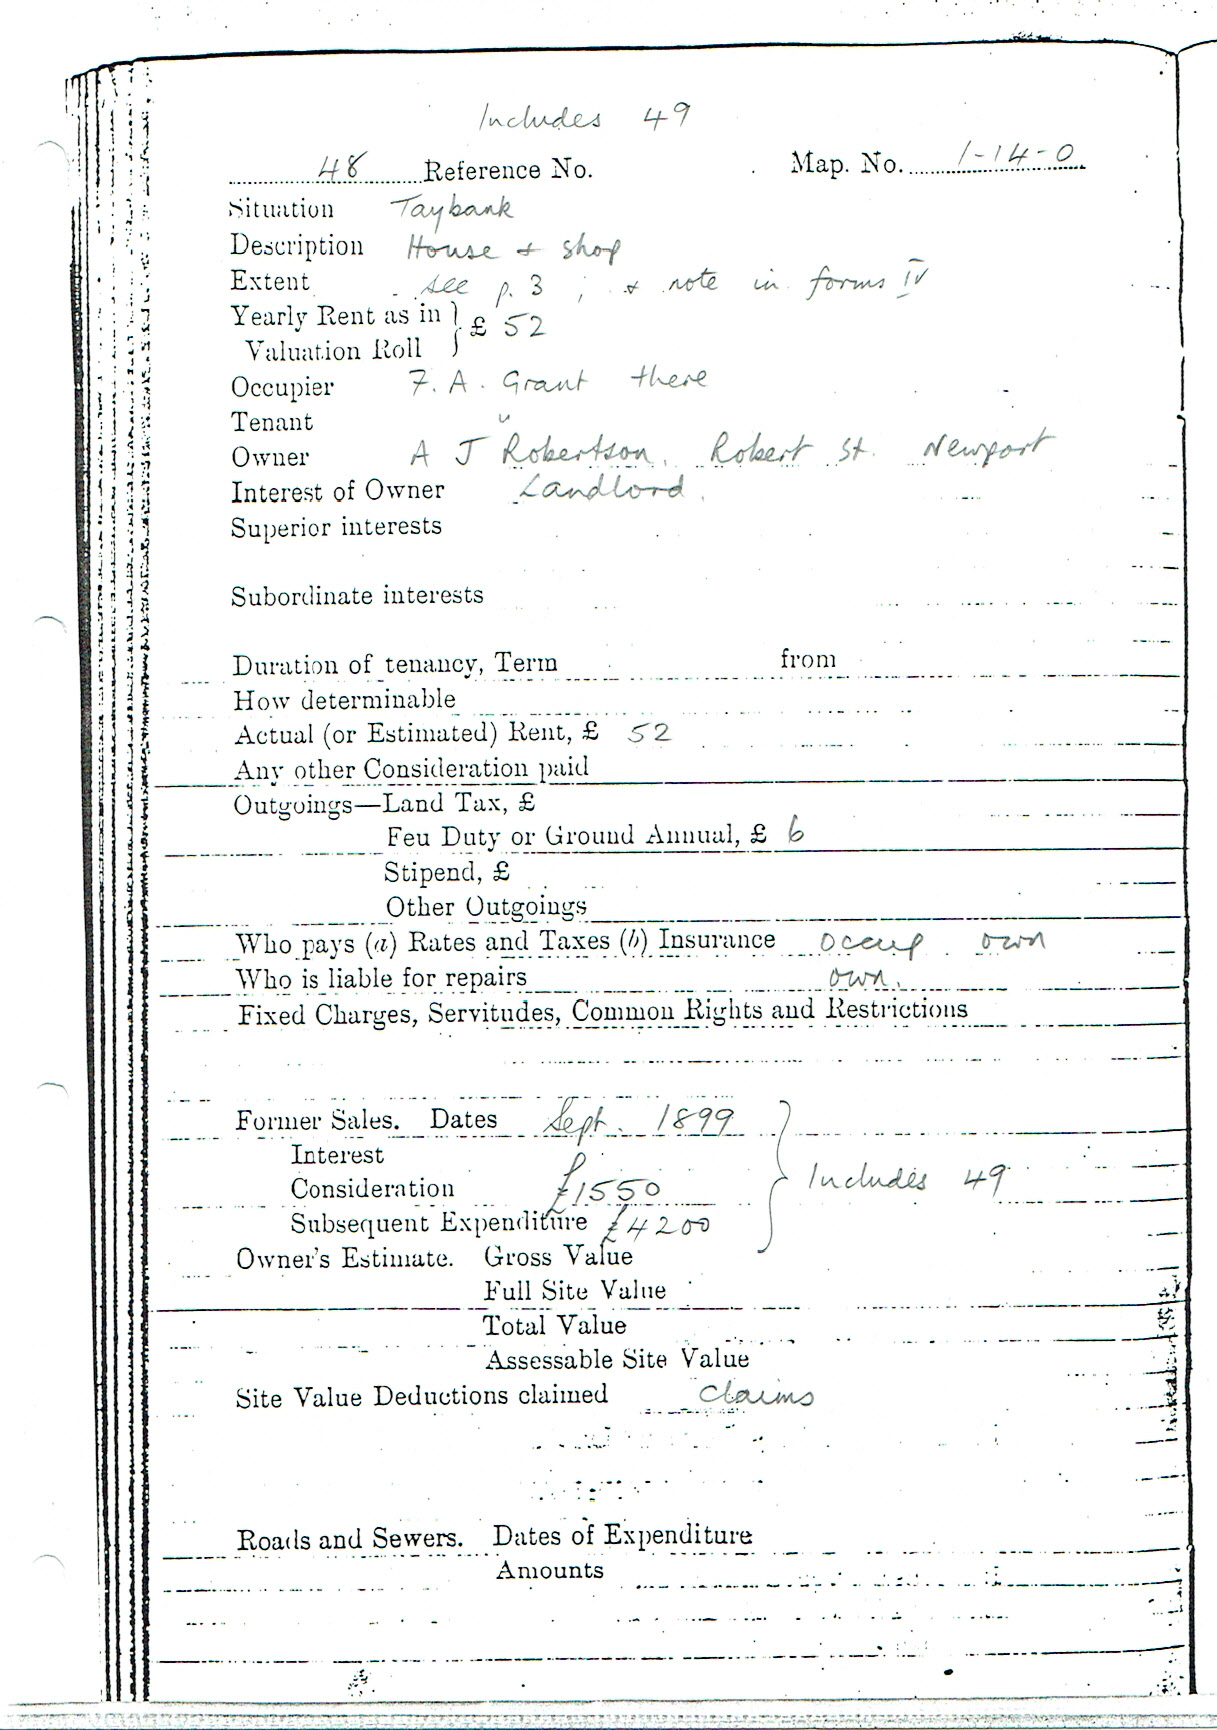 Includes 49
48 Reference No. Map. No. 1-14-0
Situation Taybank
Description House + shop
Extent see p. 3 ; + note in forms IV
Yearly Rent as in
Valuation Roll } £ 52
Occupier F. A. Grant there
Tenant "
Owner A J Robertson. Robert St. Newport
Interest of Owner Landlord.
Superior interests
Subordinate interests
Duration of tenancy, Term from
How determinable
Actual (or Estimated) Rent, £ 52
Any other Consideration paid
Outgoings—Land Tax, £
Feu Duty or Ground Annual, £ 6
Stipend, £
Other Outgoings
Who pays (a) Rates and Taxes (b) Insurance occup own
Who is liable for repairs own.
Fixed Charges, Servitudes, Common Rights and Restrictions
Former Sales. Dates Sept. 1899
Interest
Consideration £1550 } Includes 49
Subsequent Expenditure £4200
Owner's Estimate. Gross Value
Full Site Value
Total Value
Assessable Site Value
Site Value Deductions claimed Claims
Roads and Sewers. Dates of Expenditure
Amounts